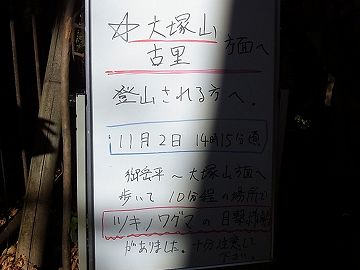 ☆大塚山
古里 方面へ
登山される方へ。
11月2日 14時15分頃
御岳平〜大塚山方面へ
歩いて10分程の場所で
ツキノワグマの目撃情報
がありました。十分注意して
下さい。